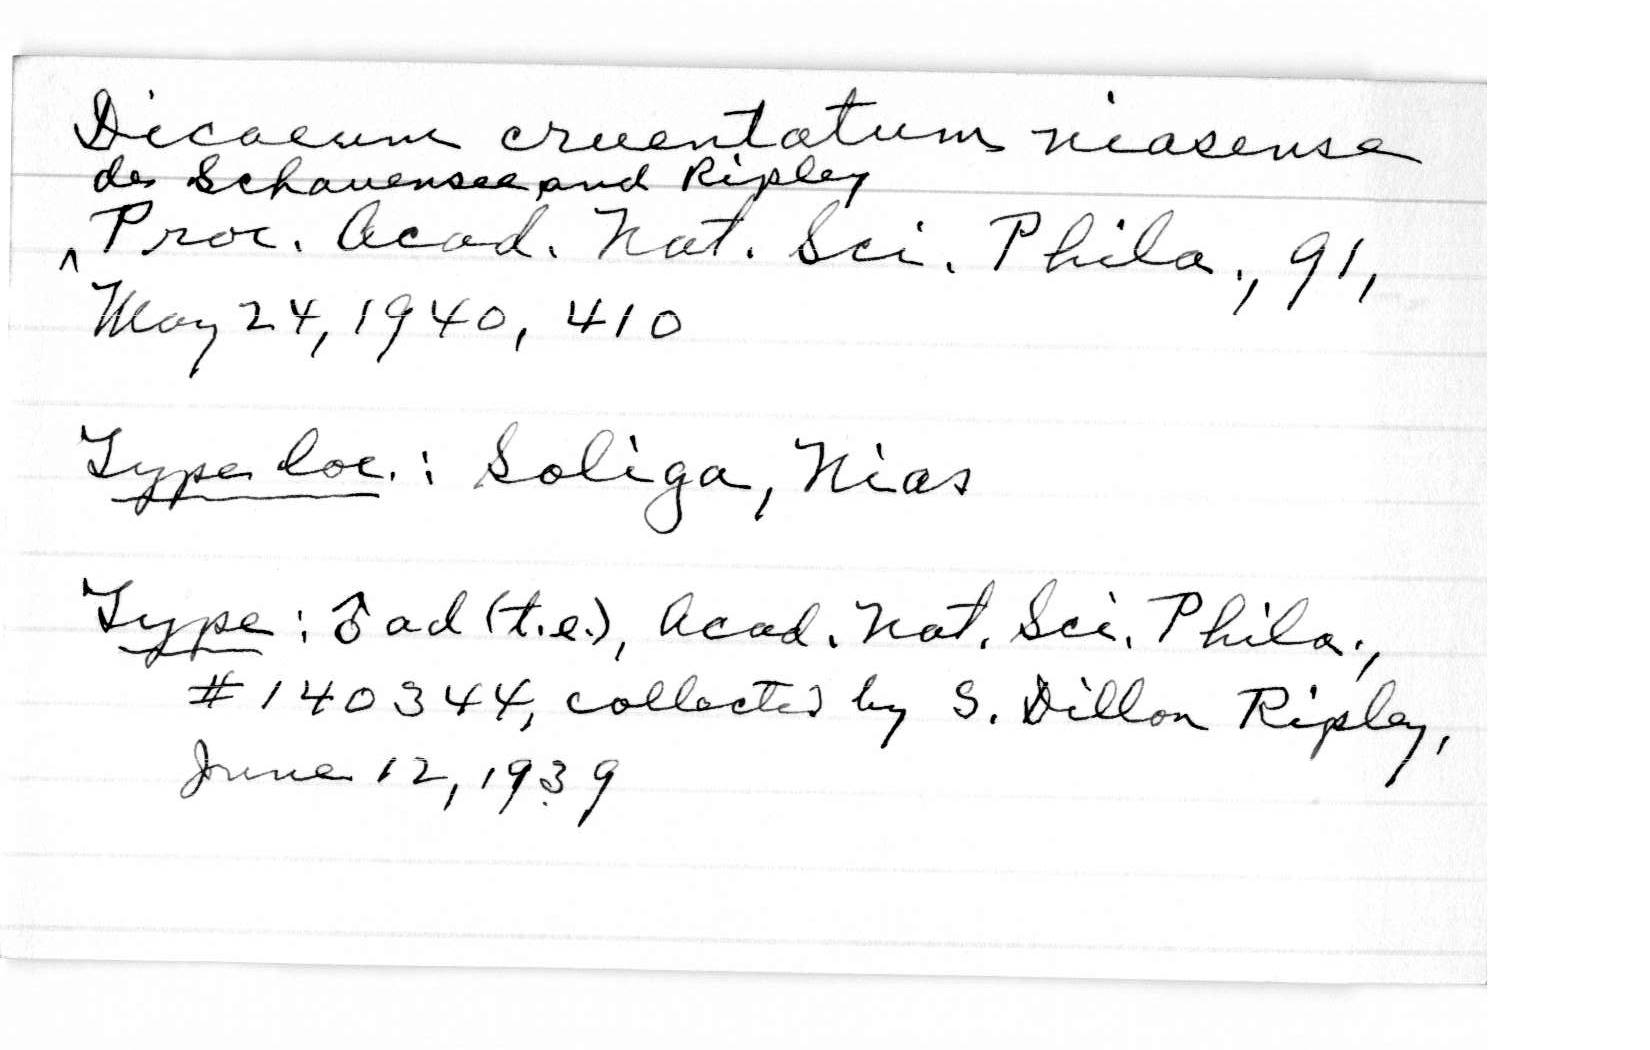 Dicaeum cruentatum niasense
de Schauensee and Ripley
^ Proc. Acad. Nat. Sci. Phila., 91,
May 24, 1940, 410
Type loc.: Soliga, Nias
Type: ♂ ad (t.e.), Acad. Nat. Sci. Phila.,
#140344, collected by S. Dillon Ripley,
June 12, 1939